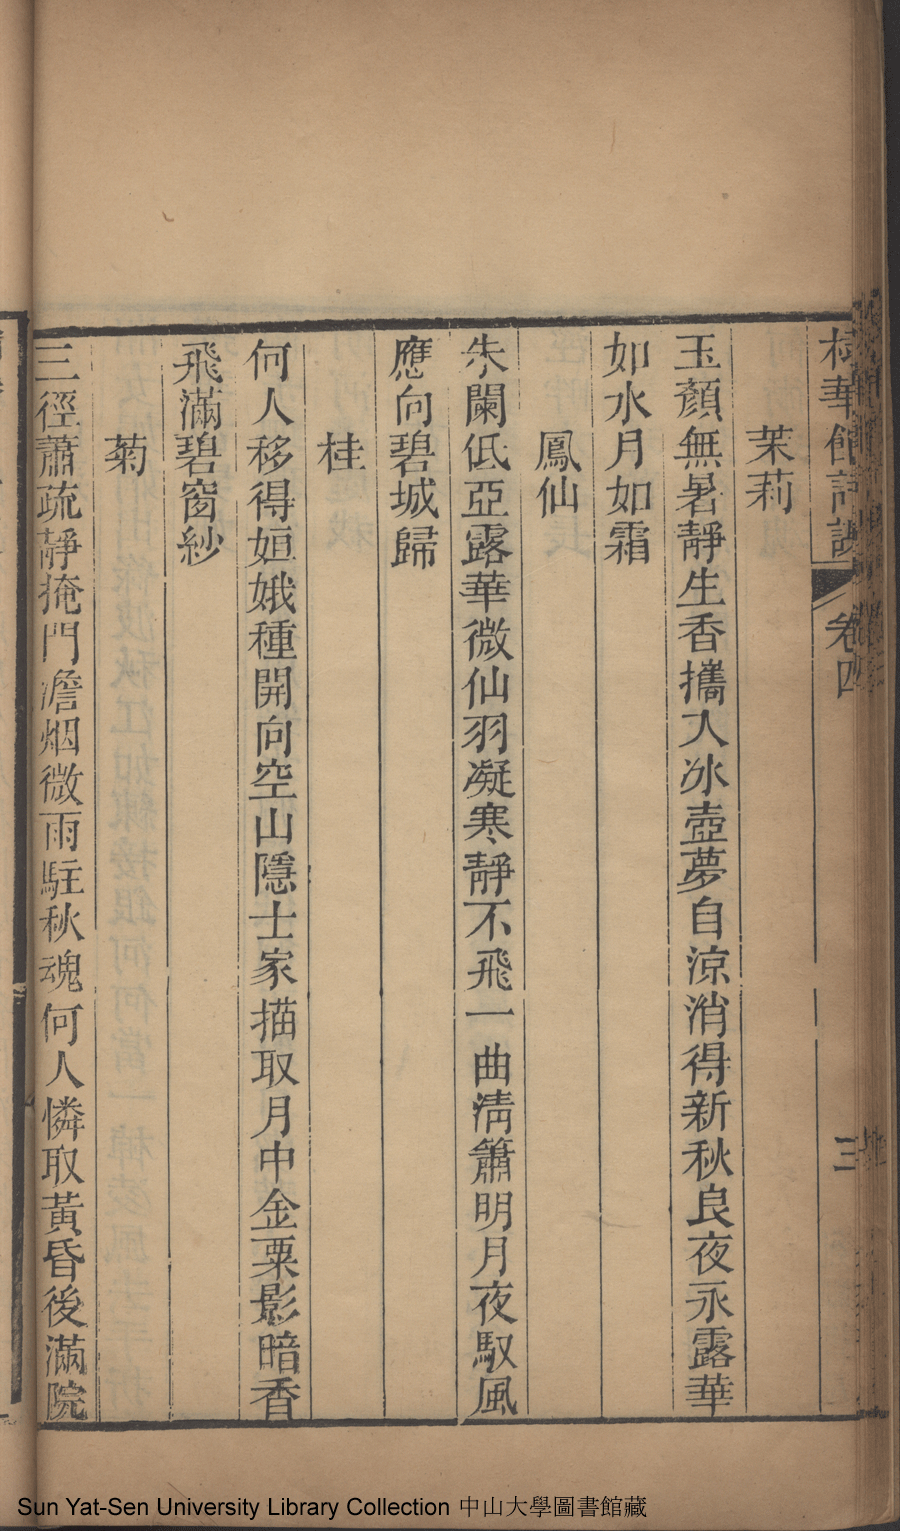 華館詩 卷四 三
茉莉
玉顏無暑靜生香攜人冰壺夢自涼消得新秋良夜永露華
如水月如霜
鳳仙
朱闌低亞露華微仙羽凝寒靜不飛一曲淸簫明月夜馭風
應向碧城歸
桂
何人移得姮娥種開向空山隱士家描取月中金粟影暗香
飛滿碧窗紗
菊
三徑蕭疏靜掩門澹烟微雨駐秋魂何人憐取黃昏後滿院
Sun Yat-Sen University Library Collection 中山大學圖書館藏